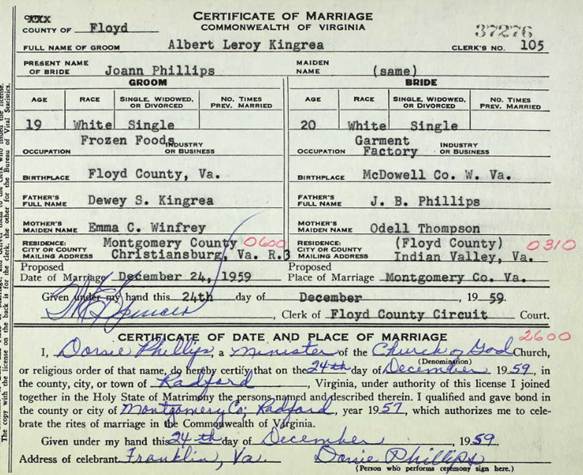 XXX
CERTIFICATE OF MARRIAGE
COUNTY OF Floyd COMMONWEALTH OF VIRGINIA 37276
FULL NAME OF GROOM Albert Leroy Kingrea CLERK'S NO. 105
PRESENT NAME OF BRIDE Joann Phillips MAIDEN NAME (same)
GROOM BRIDE
AGE RACE SINGLE, WIDOWED, OR DIVORCED NO. TIMES PREV. MARRIED AGE RACE SINGLE, WIDOWED, OR DIVORCED NO. TIMES PREV. MARRIED
19 White Single 20 White Single
OCCUPATION Frozen Foods INDUSTRY OR BUSINESS OCCUPATION Garment Factory INDUSTRY OR BUSINESS
BIRTHPLACE Floyd County, Va. BIRTHPLACE McDowell Co. W. Va.
FATHER'S FULL NAME Dewey S. Kingrea FATHER'S FULL NAME J. B. Phillips
MOTHER'S MAIDEN NAME Emma C. Winfrey MOTHER'S MAIDEN NAME Odell Thompson
RESIDENCE: CITY OR COUNTY MAILING ADDRESS Montgomery County 0600 Christiansburg, Va. R.3 RESIDENCE: CITY OR COUNTY MAILING ADDRESS (Floyd County) 0310 Indian Valley, Va.
Proposed Date of Marriage December 24, 1959 Proposed Place of Marriage Montgomery Co. Va.
Given under my hand this 24th day of December, 1959.
, Clerk of Floyd County Circuit Court.
CERTIFICATE OF DATE AND PLACE OF MARRIAGE 2600
I, Dorsie Phillips, a Minister of the Church of God Church,
(Denomination)
or religious order of that name, do hereby certify that on the 24th day of December, 1959, in
the county, city, or town of Radford, Virginia, under authority of this license I joined
together in the Holy State of Matrimony the persons named and described therein. I qualified and gave bond in
the county or city of Montgomery Co; Radford, year 1957, which authorizes me to cele-
brate the rites of marriage in the Commonwealth of Virginia.
Given under my hand this 24th day of December, 1959
Address of celebrant Franklin, Va. Dorsie Phillips
(Person who performs ceremony sign here.)
The copy with the license on the back is for the clerk, the other for the Bureau of Vital Statistics.